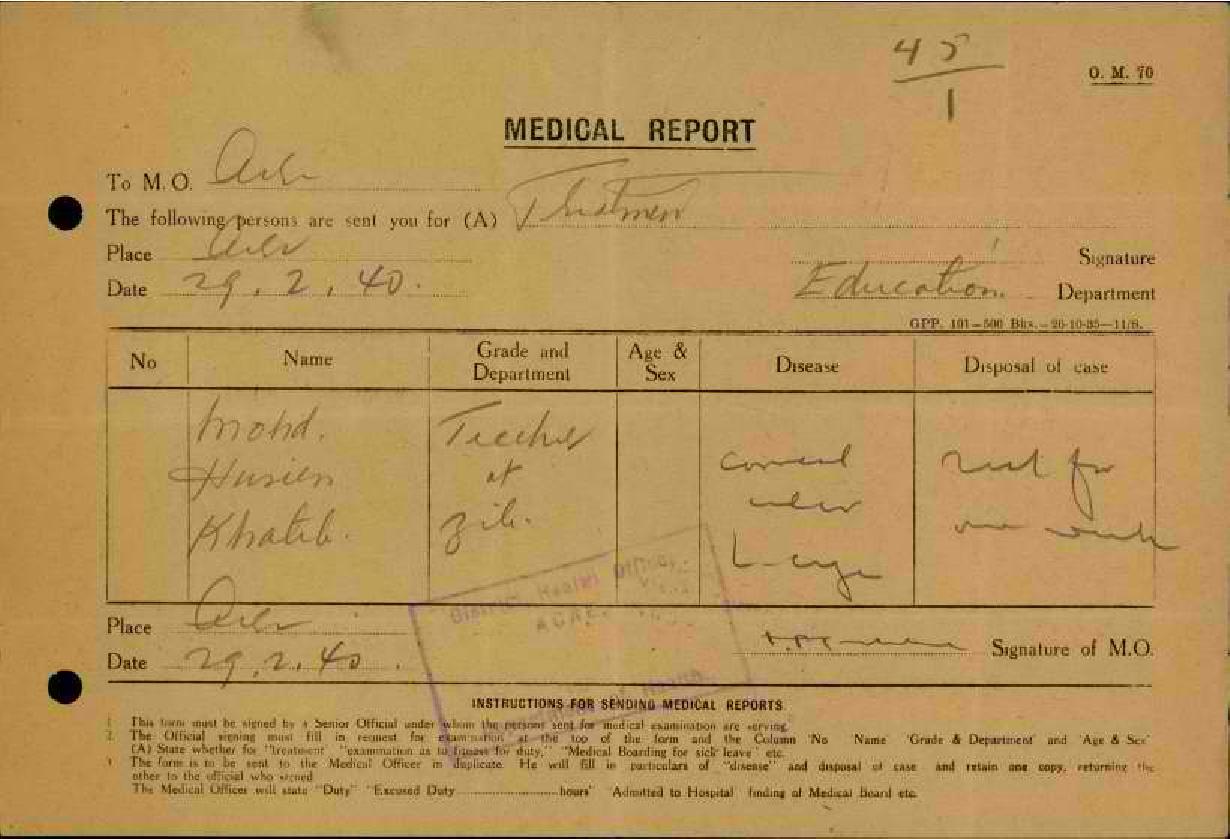 45
1
O. M. 70
MEDICAL REPORT
To M. O.
The following persons are sent you for (A) Treatment
Place
Signature
Date 29. 2. 40.
Education. Department
GPP. 101—500 Bks.—26-10-35—11/8.
No Name Grade and Department Age & Sex Disease Disposal of case
Mohd. Teacher
Husien at corneal rest for
Khatib. Zib. ulcer one week
L. eye
District Health Office,
ACRE
Place
Date 29. 2. 40.
Signature of M.O.
of Health
INSTRUCTIONS FOR SENDING MEDICAL REPORTS.
1 This form must be signed by a Senior Official under whom the persons sent for medical examination are serving.
2. The Official signing must fill in request for examination at the top of the form and the Column 'No Name' 'Grade & Department' and 'Age & Sex'
(A) State whether for "treatment" "examination as to fitness for duty," "Medical Boarding for sick leave" etc.
The form is to be sent to the Medical Officer in duplicate. He will fill in particulars of "disease" and disposal of case and retain one copy, returning the
other to the official who signed
The Medical Officer will state "Duty" "Excused Duty..............hours" 'Admitted to Hospital' finding of Medical Board etc.